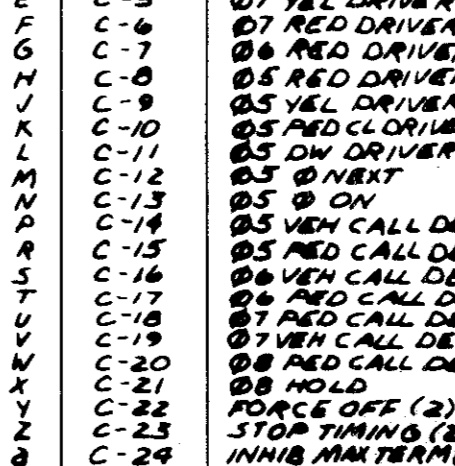 E C-5 Ø7 YEL DRIVER
F C-6 Ø7 RED DRIVER
G C-7 Ø6 RED DRIVE
H C-8 Ø5 RED DRIVE
J C-9 Ø5 YEL DRIVER
K C-10 Ø5 PED CL DRIVE
L C-11 Ø5 DW DRIVER
M C-12 Ø5 Ø NEXT
N C-13 Ø5 Ø ON
P C-14 Ø5 VEH CALL DE
R C-15 Ø5 PED CALL DE
S C-16 Ø6 VEH CALL DE
T C-17 Ø6 PED CALL D
U C-18 Ø7 PED CALL DE
V C-19 Ø7 VEH CALL DE
W C-20 Ø8 PED CALL DE
X C-21 Ø8 HOLD
Y C-22 FORCE OFF (2)
Z C-23 STOP TIMING (2
a C-24 INHIB MAX TERM